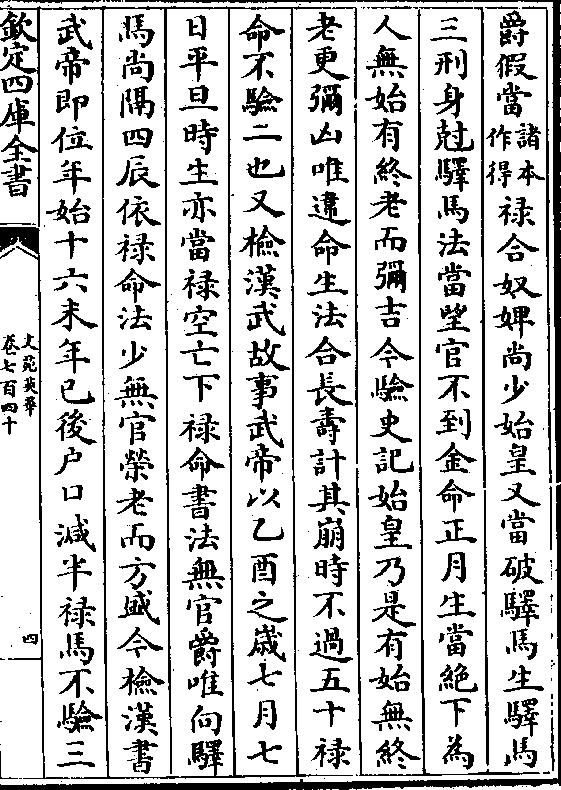 爵假當諸本作得禄合奴婢尚少始皇又當破驛馬生驛馬
三刑身尅驛馬法當望官不到金命正月生當絶下為
人無始有終老而彌吉今驗史記始皇乃是有始無終
老更彌凶唯建命生法合長壽計其崩時不過五十禄
命不驗二也又檢漢武故事武帝以乙酉之歳七月七
日平旦時生亦當禄空亡下禄命書法無官爵唯向驛
馬尚隔四辰依禄命法少無官榮老而方盛今檢漢書
武帝即位年始十六末年已後户口減半禄馬不驗三
欽定四庫全書
文苑英華
卷七百四十
四